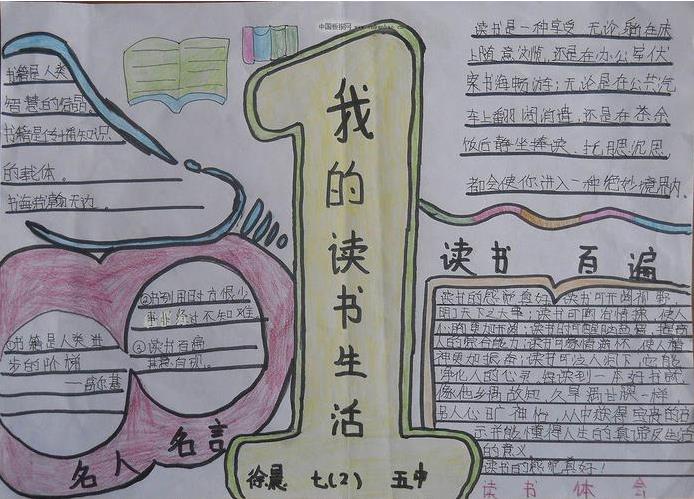 中国板报网
书籍是人类
智慧的结晶
书籍是传播知识
的载体。
书海荡翰无边。
我的读书生活
读书是一种享受 无论躺在床
上随意欢愉,还是在办公室伏
案书海畅游;无论是在公共汽
车上翻阅消遣,还是在茶余
饭后静坐捧读,托腮沉思,
都会使你进入一种绝妙境界内。
读书 百遍
①书籍是人类进
步的阶梯
——高尔基
②书到用时方恨少
事非经过不知难
③读书百遍
其意自现。
名人名言
徐晨 七(2) 五中
读书的感觉真好,读书可开阔视野
明了天下之大事;读书可陶冶情操,使人
心胸更加开阔;读书可
人的综合能力;读书可 使人精
神更加振奋;读书可
净化人的心灵,每读到一本好书就
像他乡遇故知,久旱遇甘霖一样
书人心旷神怡,从中获得宝贵的
示并能懂得人生的真谛及生活
的意义
读书的感觉真好!
读书体会